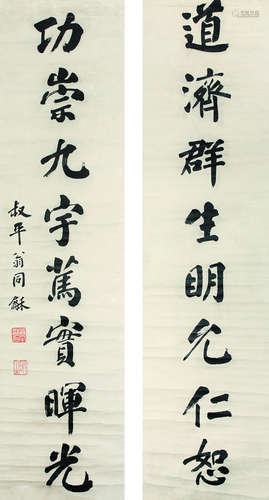 道濟群生明允仁恕
功崇九宇篤實暉光
叔平翁同龢